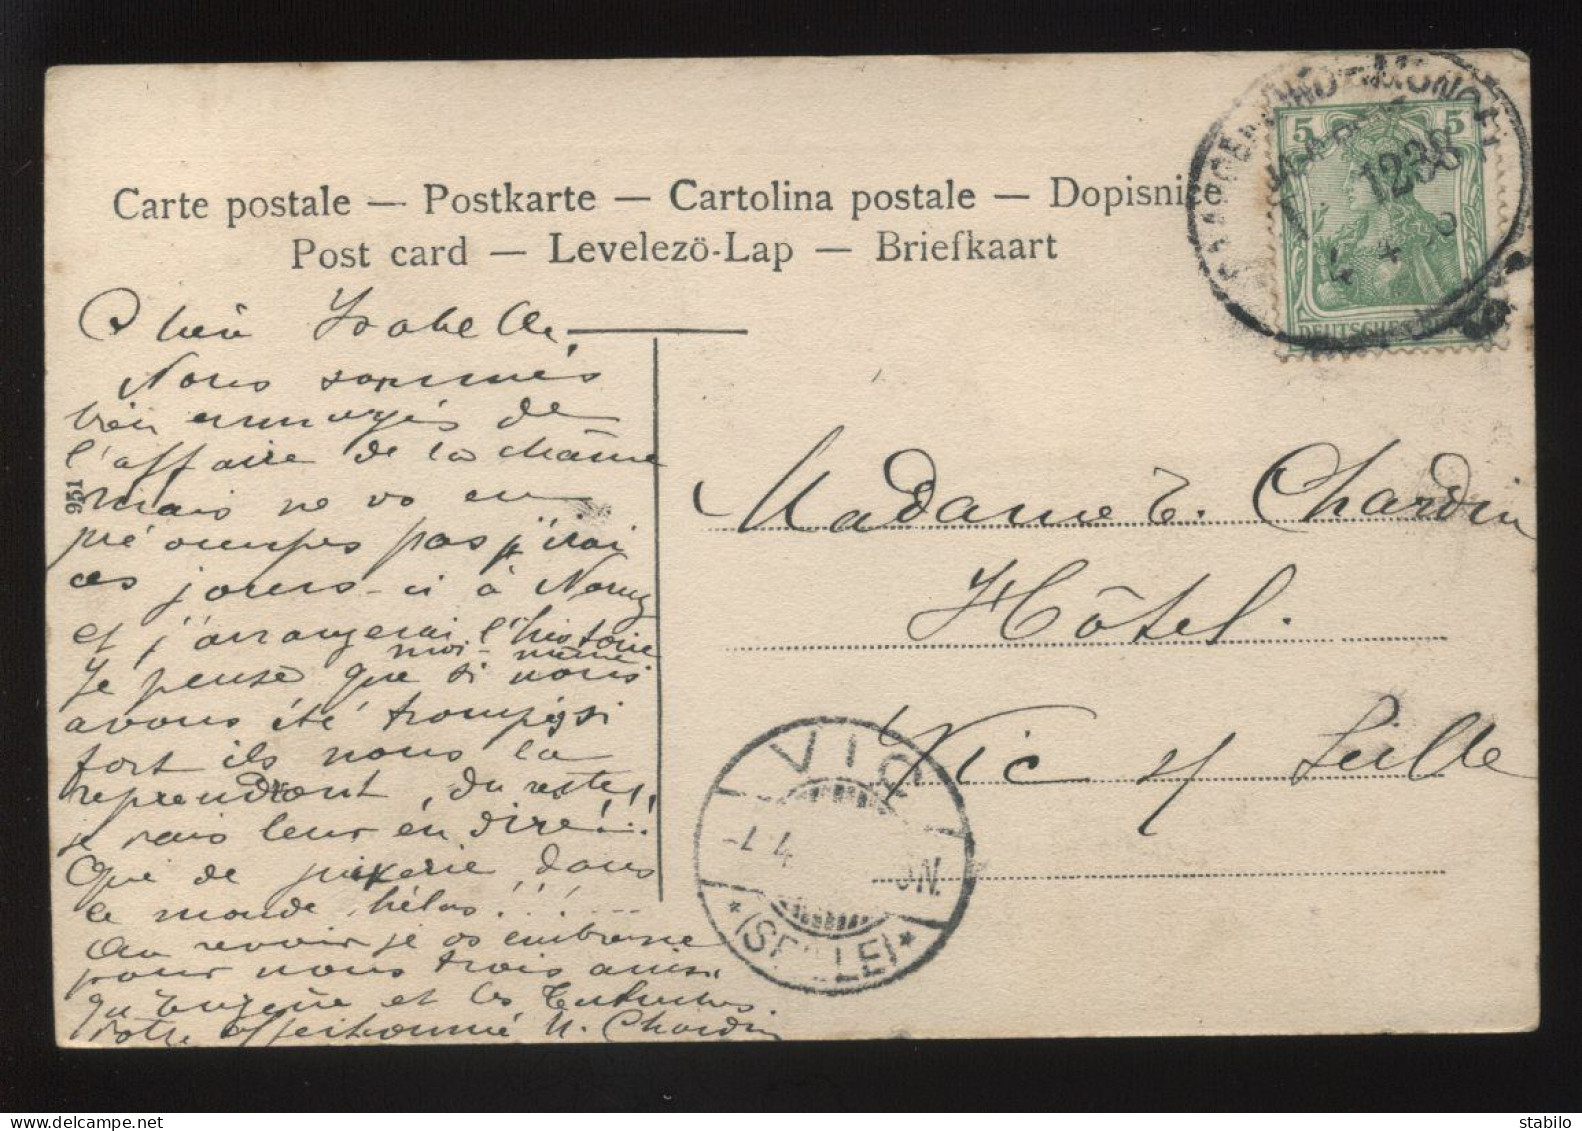 Carte postale — Postkarte — Cartolina postale — Dopisnice
Post card — Levelező-Lap — Briefkaart
5 5
1238
DEUTSCHES
Chère Isabelle,
Nous sommes
bien ennuyés de
l'affaire de la chaîne
mais ne vs en
pré ocupes pas j'irai
ces jours-ci à Nancy
et j'arrangerai l'histoire
moi-même
Je pense que si nous
avons été trompés si
fort ils nous la
reprendront, du reste
je vais leur en dire!!!
Que de dans
le monde, hélas!!!
Au revoir je vs embrasse
pour nous trois ainsi
qu'Eugène et les
votre affectionnée M. Chardin
951
Madame E. Chardin
Hôtel.
Vic s/ Seille
VIC
4
*(SEILLE)*
delcampe.net
stabilo